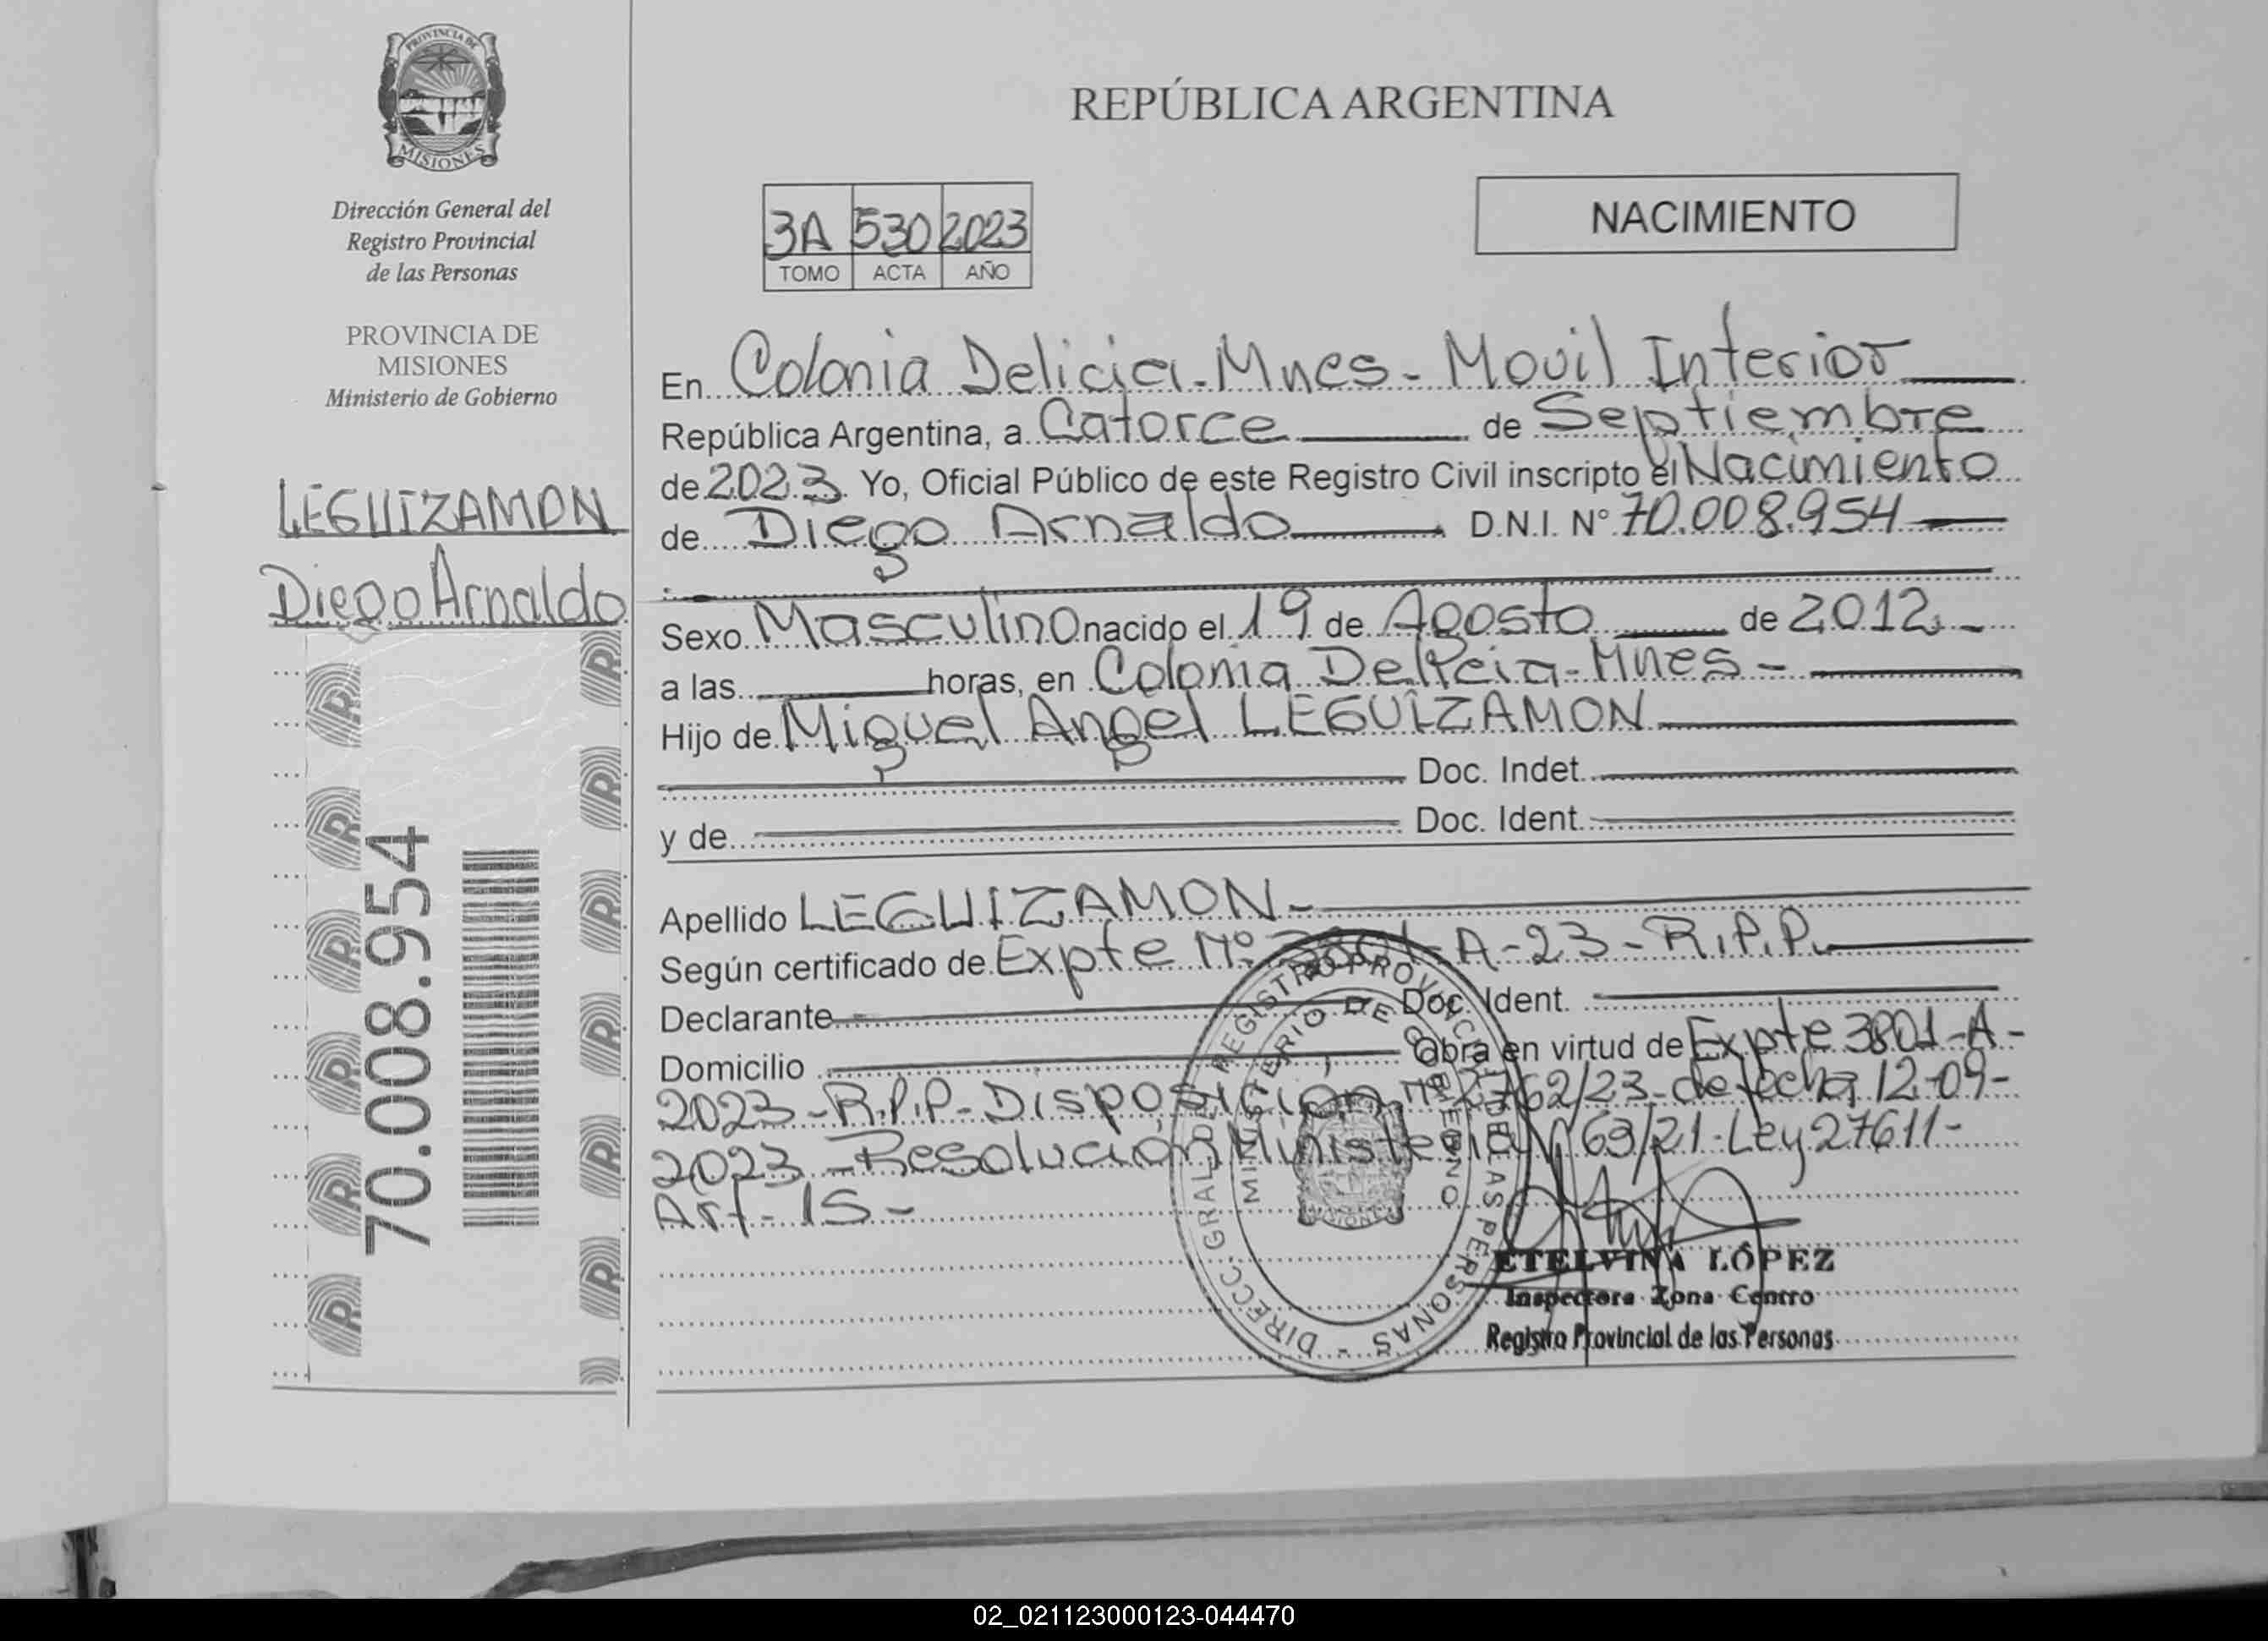 PROVINCIA DE
MISIONES
Dirección General del
Registro Provincial
de las Personas
PROVINCIA DE
MISIONES
Ministerio de Gobierno
LEGUIZAMON
Diego Arnaldo
70.008.954
REPÚBLICA ARGENTINA
3A 530 2023
TOMO ACTA AÑO
NACIMIENTO
En Colonia Delicia-Mnes-Movil Interior
República Argentina, a Catorce de Septiembre
de 2023 Yo, Oficial Público de este Registro Civil inscripto el Nacimiento
de Diego Arnaldo D.N.I. N° 70.008.954
Sexo Masculino nacido el 19 de Agosto de 2012
a las horas, en Colonia Delicia-Mnes-
Hijo de Miguel Angel LEGUIZAMON
Doc. Indet.
y de Doc. Ident.
Apellido LEGUIZAMON-
Según certificado de Expte N° 3801-A-23-R.P.P.
Declarante Doc. Ident.
Domicilio Obra en virtud de Expte 3801-A-
2023-R.P.P-Disposición n° 2762/23-de fecha 12-09-
2023-Resolución Ministerial 69/21-Ley 27611-
Art-15-
DIRECC. GRAL. DEL REGISTRO PROVINCIAL DE LAS PERSONAS -
MINISTERIO DE GOBIERNO
ETELVINA LÓPEZ
Inspectora Zona Centro
Registro Provincial de las Personas
02_021123000123-044470